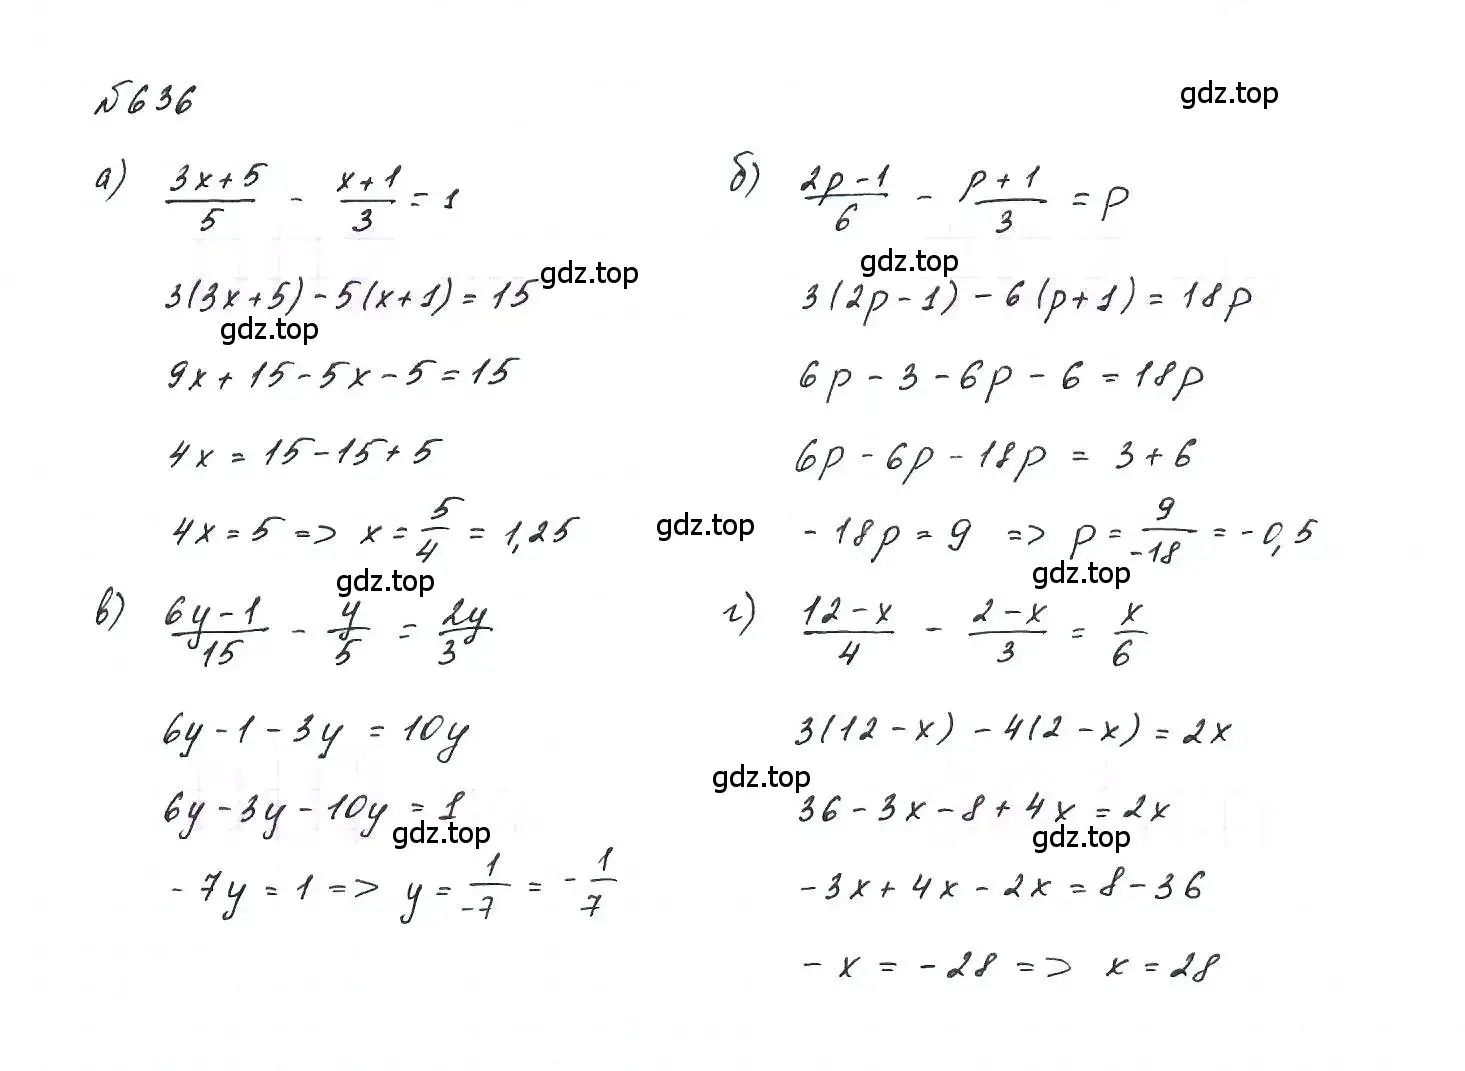 №636
gdz.top
а) (3x+5)/5 - (x+1)/3 = 1
б) (2p-1)/6 - (p+1)/3 = p
gdz.top
gdz.top
3(3x+5)-5(x+1)=15
3(2p-1)-6(p+1)=18p
gdz.top
9x+15-5x-5=15
6p-3-6p-6=18p
4x=15-15+5
6p-6p-18p=3+6
4x=5=>x=5/4=1,25
gdz.top
-18p=9 => p=9/-18=-0,5
gdz.top
gdz.top
в) (6y-1)/15 - y/5 = 2y/3
г) (12-x)/4 - (2-x)/3 = x/6
6y-1-3y=10y
3(12-x)-4(2-x)=2x
gdz.top
6y-3y-10y=1
36-3x-8+4x=2x
gdz.top
gdz.top
-7y=1=>y=1/-7=-1/7
-3x+4x-2x=8-36
-x=-28=> x=28